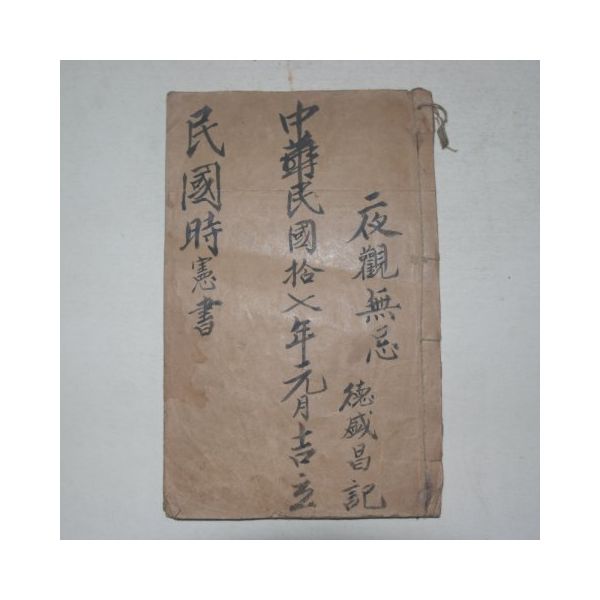 夜觀無忌
德盛昌記
中華民國拾七年元月吉立
民國時憲書